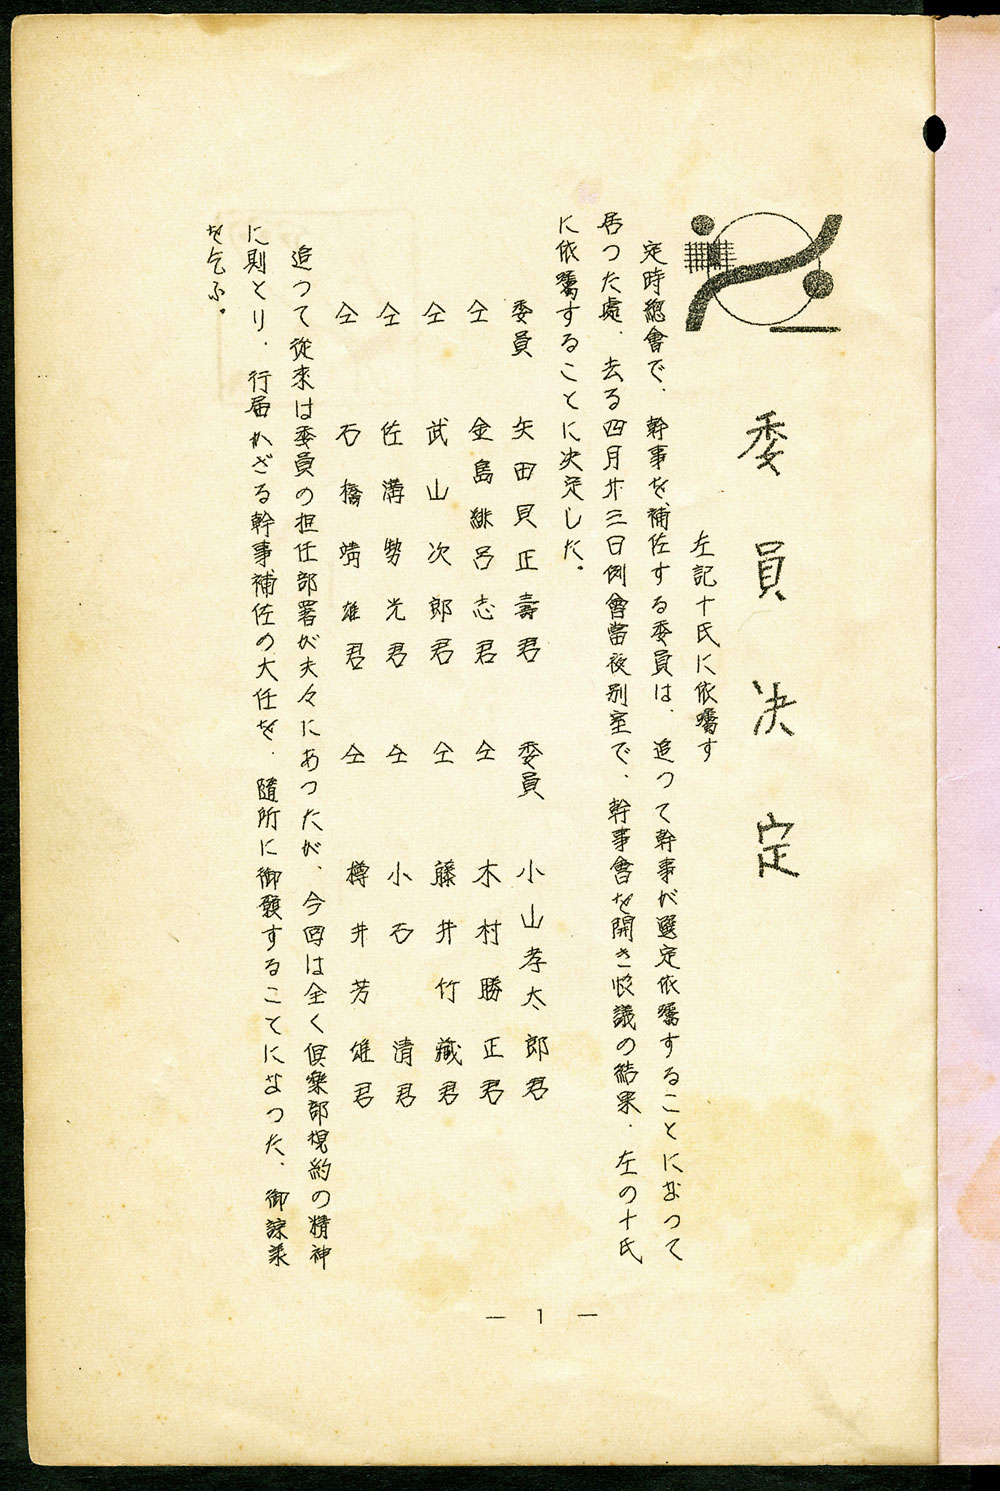 委員決定
左記十氏に依囑す
定時總會で、幹事を補佐する委員は、追つて幹事が選定依囑することになつて
居つた處、去る四月廿三日例會當夜別室で、幹事會を開き协議の結果、左の十氏
に依囑することに決定した。
委員 矢田貝正壽君 委員 小山孝太郎君
仝 金島緋呂志君 仝 木村勝正君
仝 武山次郎君 仝 藤井竹藏君
仝 佐溝勢光君 仝 小石清君
仝 石橋靖雄君 仝 樽井芳雄君
追つて從來は委員の担任部署が夫々にあつたが、今回は全く倶樂部規約の精神
に則とり、行届かざる幹事補佐の大任を、隨所に御願することになつた、御諒承
を乞ふ。
— 1 —